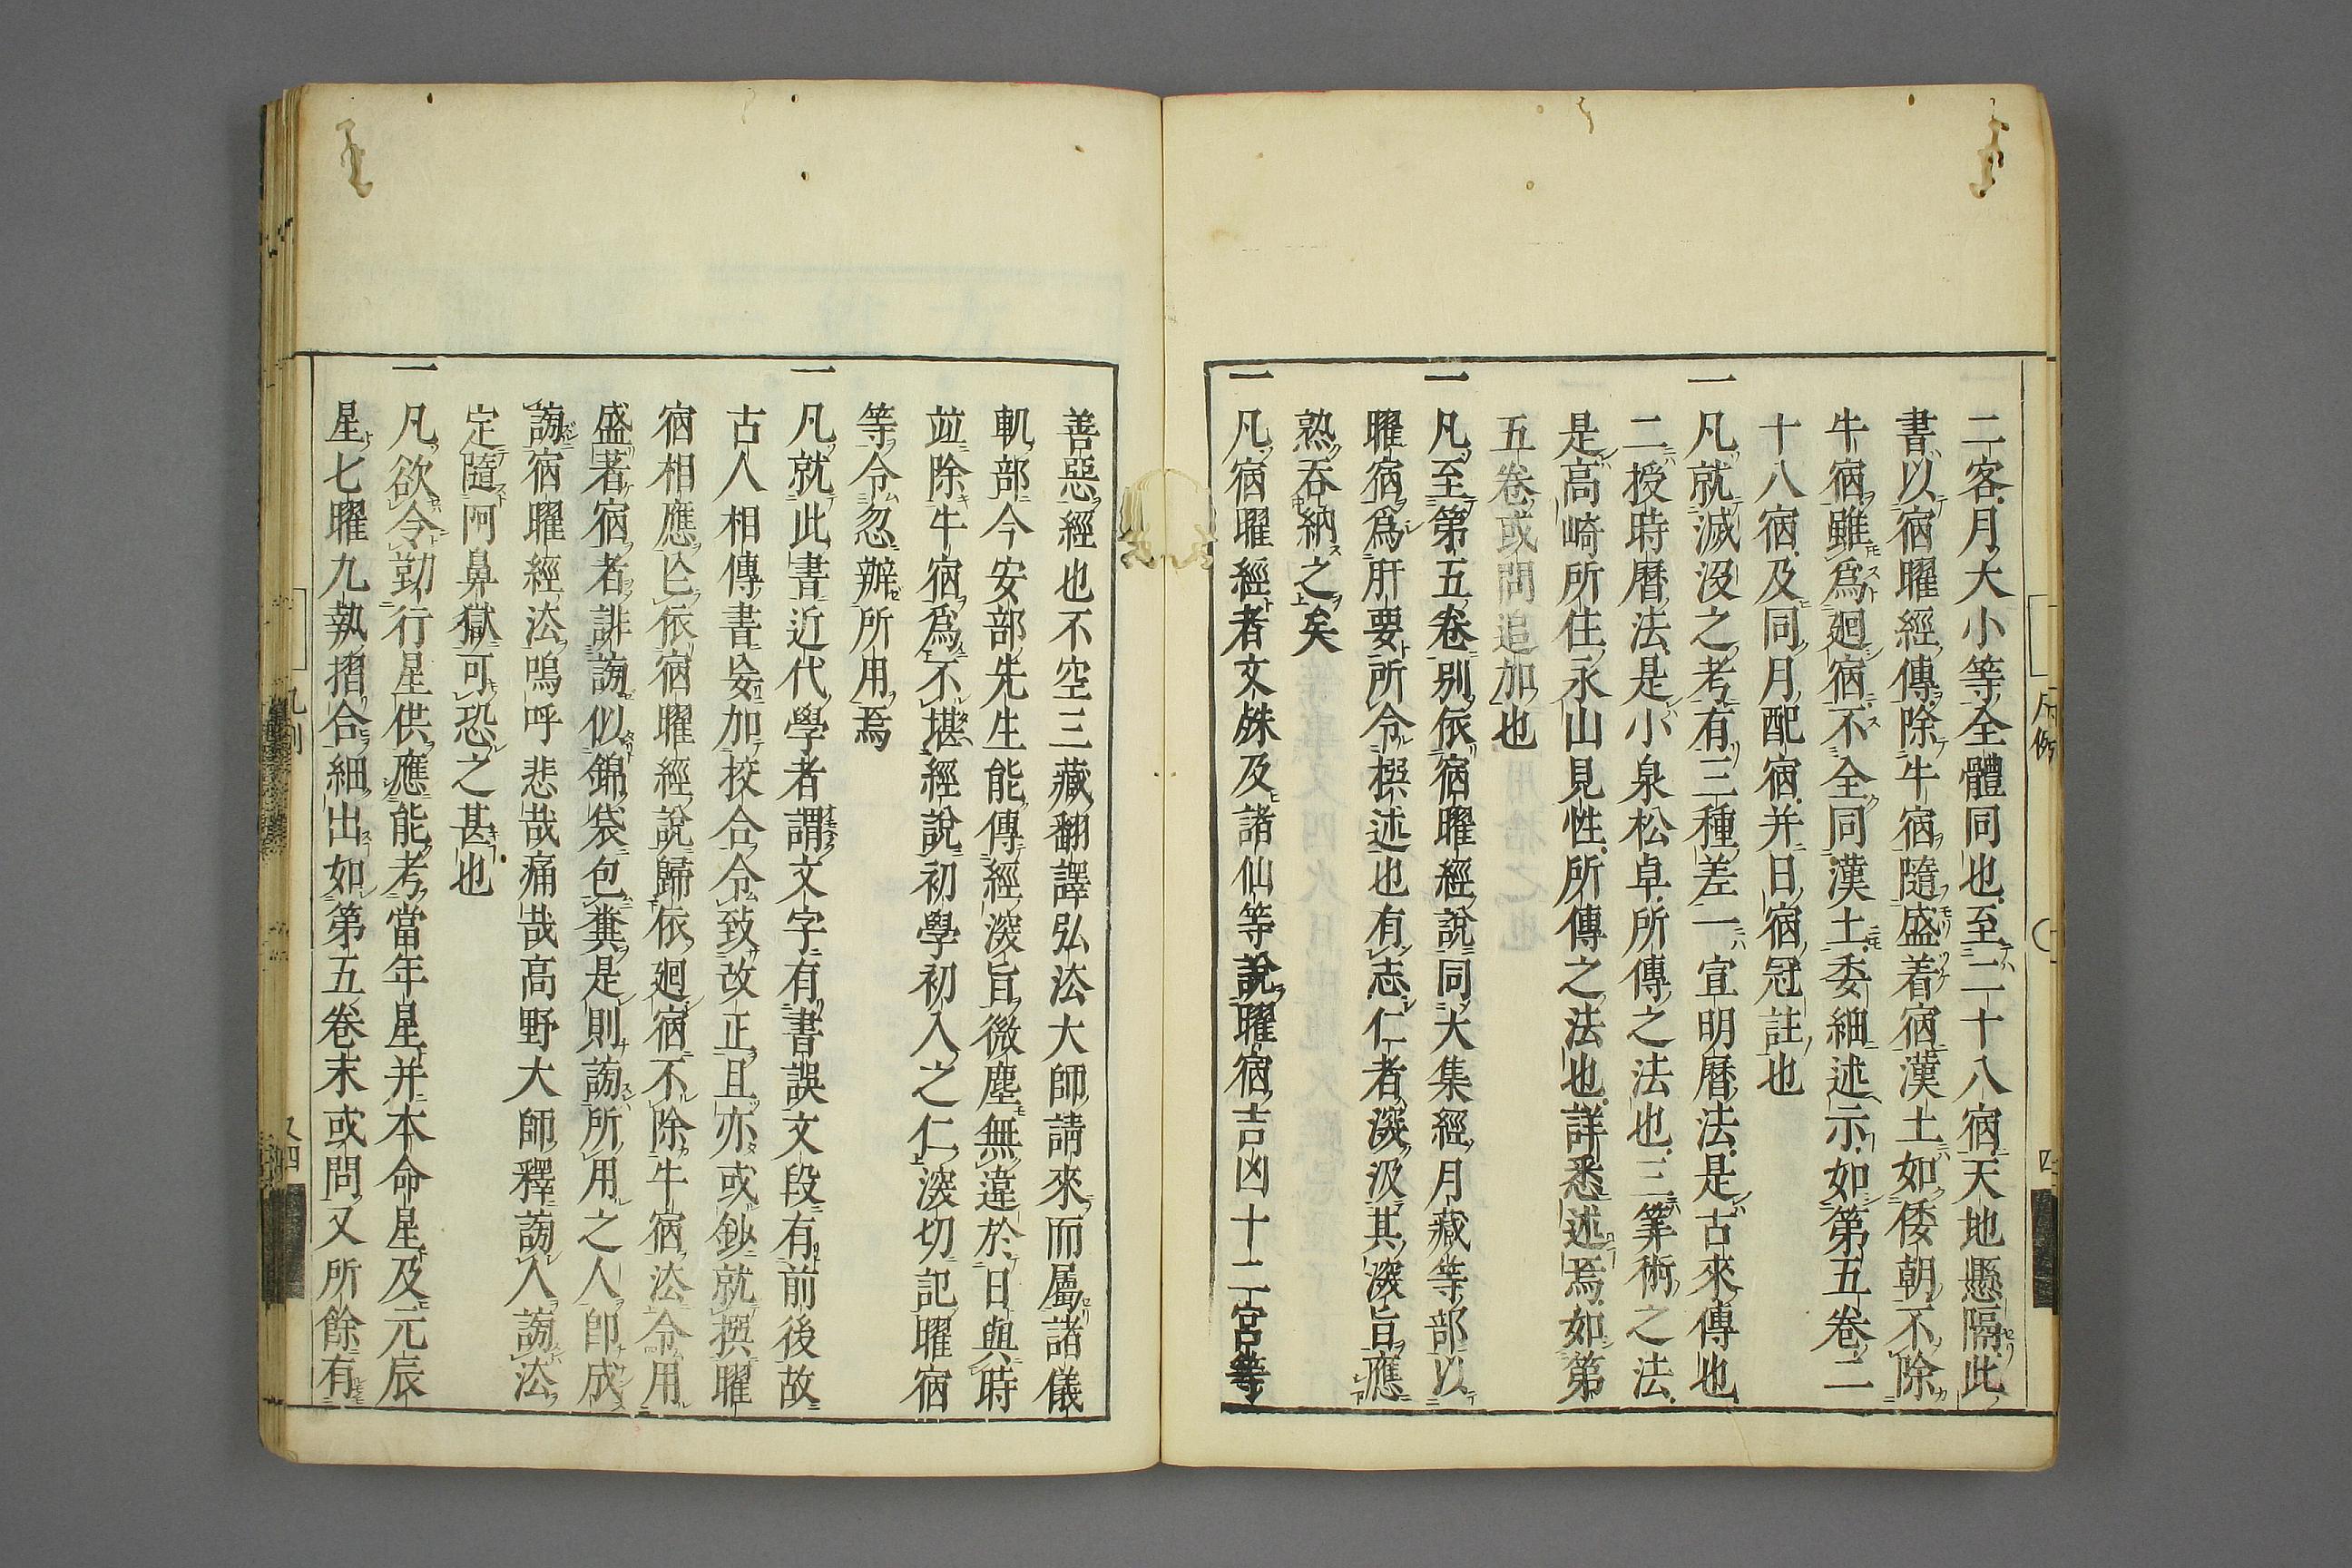 二客月大小等全體同也至二十八宿天地懸隔此
書以宿曜經傳除牛宿隨盛着宿漢土如倭朝不除
牛宿雖爲廻宿不全同漢土委細述示如第五卷二
十八宿及同月配宿并日宿冠註也
一凡就滅没之考有三種差一宣明曆法是古來傳也
二授時曆法是小泉松卓所傳之法也三筭術之法
是高崎所住永山見性所傳之法也詳悉述焉如第
五卷或問追加也
一凡至第五卷別依宿曜經說同大集經月藏等部以
曜宿爲肝要所令撰述也有志仁者深汲其深旨應
熟吞納之矣
一凡宿曜經者文殊及諸仙等說曜宿吉凶十二宮等
善惡經也不空三藏翻譯弘法大師請來而屬諸儀
軌部今安部先生能傳經深旨微塵無違於日與時
竝除牛宿爲不堪經說初學初入之仁深切記曜宿
等令忽辨所用焉
一凡就此書近代學者謂文字有書誤文段有前後故
古人相傳書妄加挍合令致改正且亦或鈔就撰曜
宿相應亡依宿曜經說歸依廻宿不除牛宿法令用
盛著宿者誹謗似錦袋包糞是則謗所用之人即成
謗宿曜經法嗚呼悲哉痛哉高野大師釋謗人謗法
定隨阿鼻獄可恐之甚也
一凡欲令勤行星供應能考當年星并本命星及元辰
星七曜九執摺合細出如第五卷末或問又所餘有
凡例
四
又四